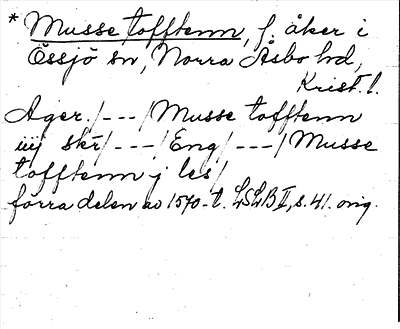 * Musse tofftenn, f. åker i
Össjö sn, Norra Åsbo hd,
Krist. l.
Ager /---/ Musse tofftenn
iiij skr /---/ Eng /---/ Musse
tofftenn j les /
förra delen av 1570-t. LSLB II, s. 41. orig.